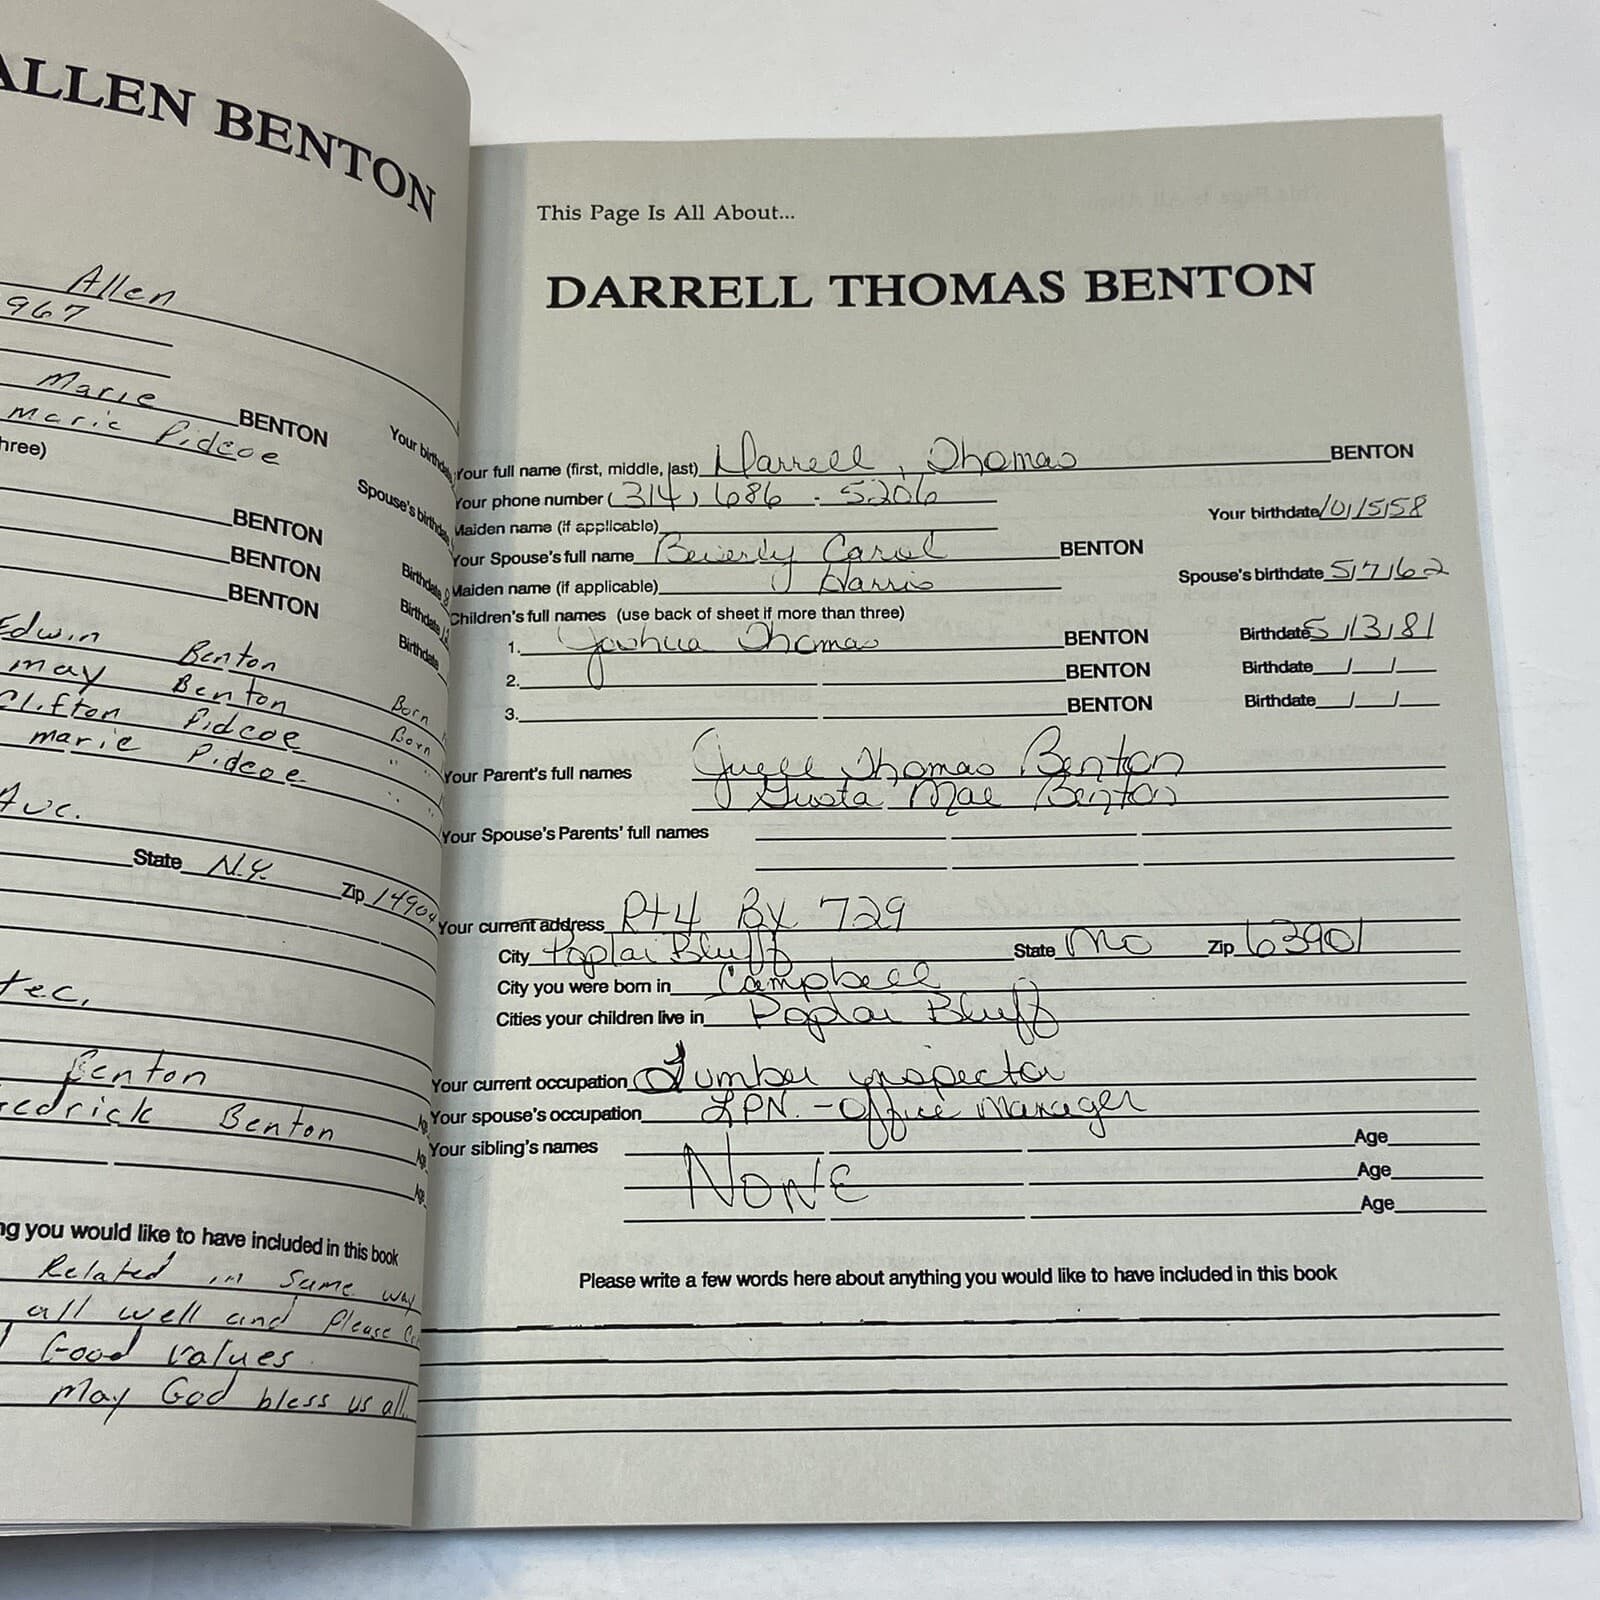 ALLEN BENTON
Allen
967
Marie BENTON Your birthda
marie Pidcoe
hree) Spouse's birthda
BENTON
BENTON Birthdate
BENTON Birthdate
Edwin Benton Birthdate
may Benton Born
Clifton Pidcoe Born
marie Pidcoe " "
Ave. " "
State N.Y. Zip 14904
tec,
Benton
edrick Benton
ng you would like to have included in this book
Related in Some way
all well and Please
Good values
May God bless us all.
This Page Is All About...
DARRELL THOMAS BENTON
Your full name (first, middle, last) Darrell, Thomas BENTON
Your phone number (314) 686 - 5206
Maiden name (if applicable) Your birthdate 10/5/58
Your Spouse's full name Beverly Carol BENTON
Maiden name (if applicable) Harris Spouse's birthdate 5/7/62
Children's full names (use back of sheet if more than three)
1. Joshua Thomas BENTON Birthdate 5/13/81
2. BENTON Birthdate / /
3. BENTON Birthdate / /
Your Parent's full names Thomas Benton
Gusta Mae Benton
Your Spouse's Parents' full names
Your current address Rt 4 Bx 729
City Poplar Bluff State Mo Zip 63901
City you were born in Campbell
Cities your children live in Poplar Bluff
Your current occupation Lumber inspector
Your spouse's occupation LPN. - Office Manager
Your sibling's names Age
NONE Age
Age
Please write a few words here about anything you would like to have included in this book